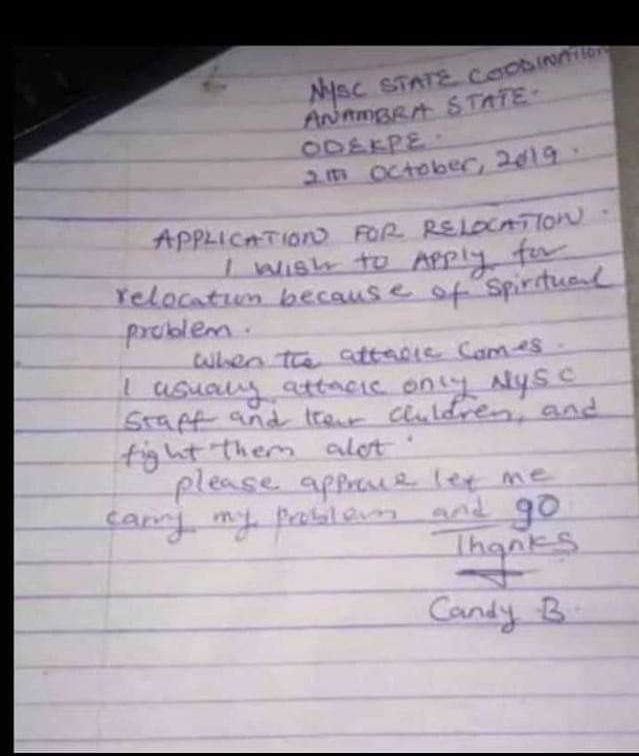 NYSC STATE COODINATION
ANAMBRA STATE.
ODEKPE.
2nd October, 2019.
APPLICATION FOR RELOCATION.
I wish to Apply for
relocation because of Spiritual
problem.
When the attack Comes.
I usually attack only NYSC
Staff and their children, and
fight them alot.
please approve let me
carry my problem and go
Thanks
Candy B.